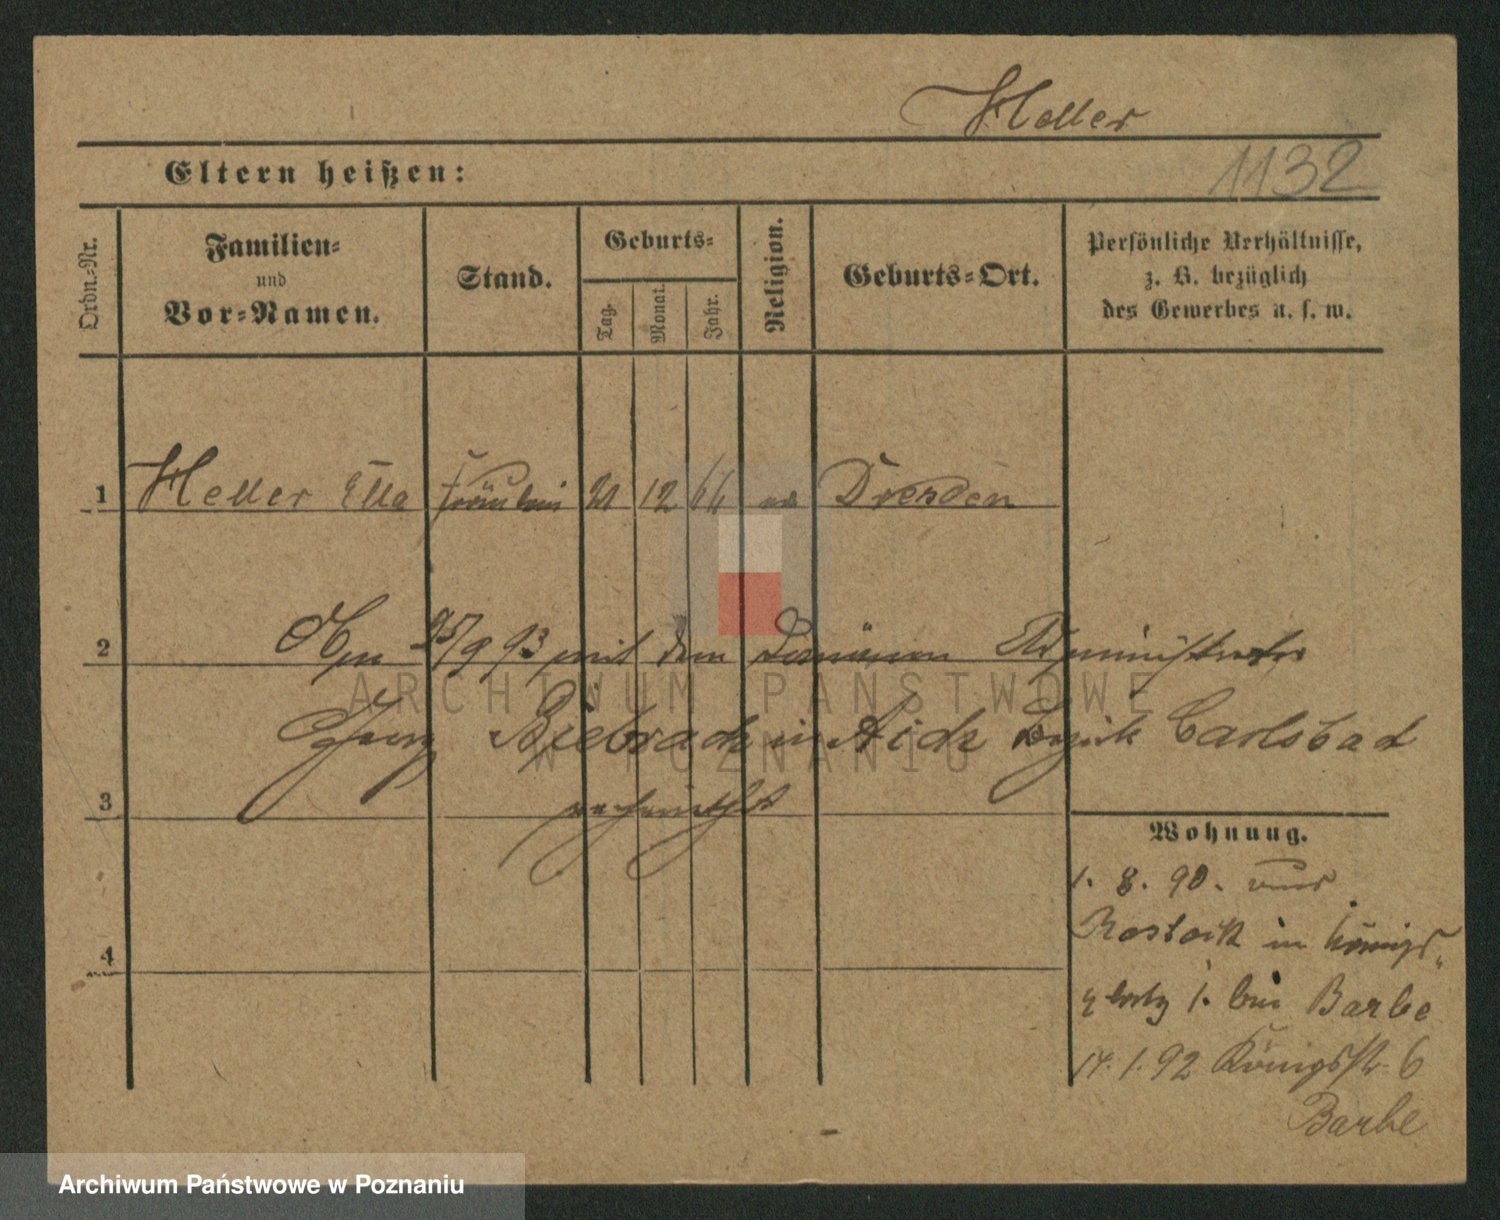 Heller
Eltern heißen:
1132
Ordn.-Nr.
Familien-
und
Vor-Namen.
Stand.
Geburts-
Tag.
Monat.
Jahr.
Religion.
Geburts-Ort.
Persönliche Verhältnisse,
z. B. bezüglich
des Gewerbes u. s. w.
1 Heller Ella Fräulein 21 12 66 ev Dresden
2 Am 25/9 93 mit dem Domänen Administrator
ARCHIWUM PAŃSTWOWE
Georg Biebrach in Aich Bezirk Carlsbad
W POZNANIU
3 verheirathet
Wohnung.
1. 8. 90. aus
Rostock in Königs-
platz 1. bei Barbe
4
14. 1. 92 Königsstr. 6
Barbe
Archiwum Państwowe w Poznaniu